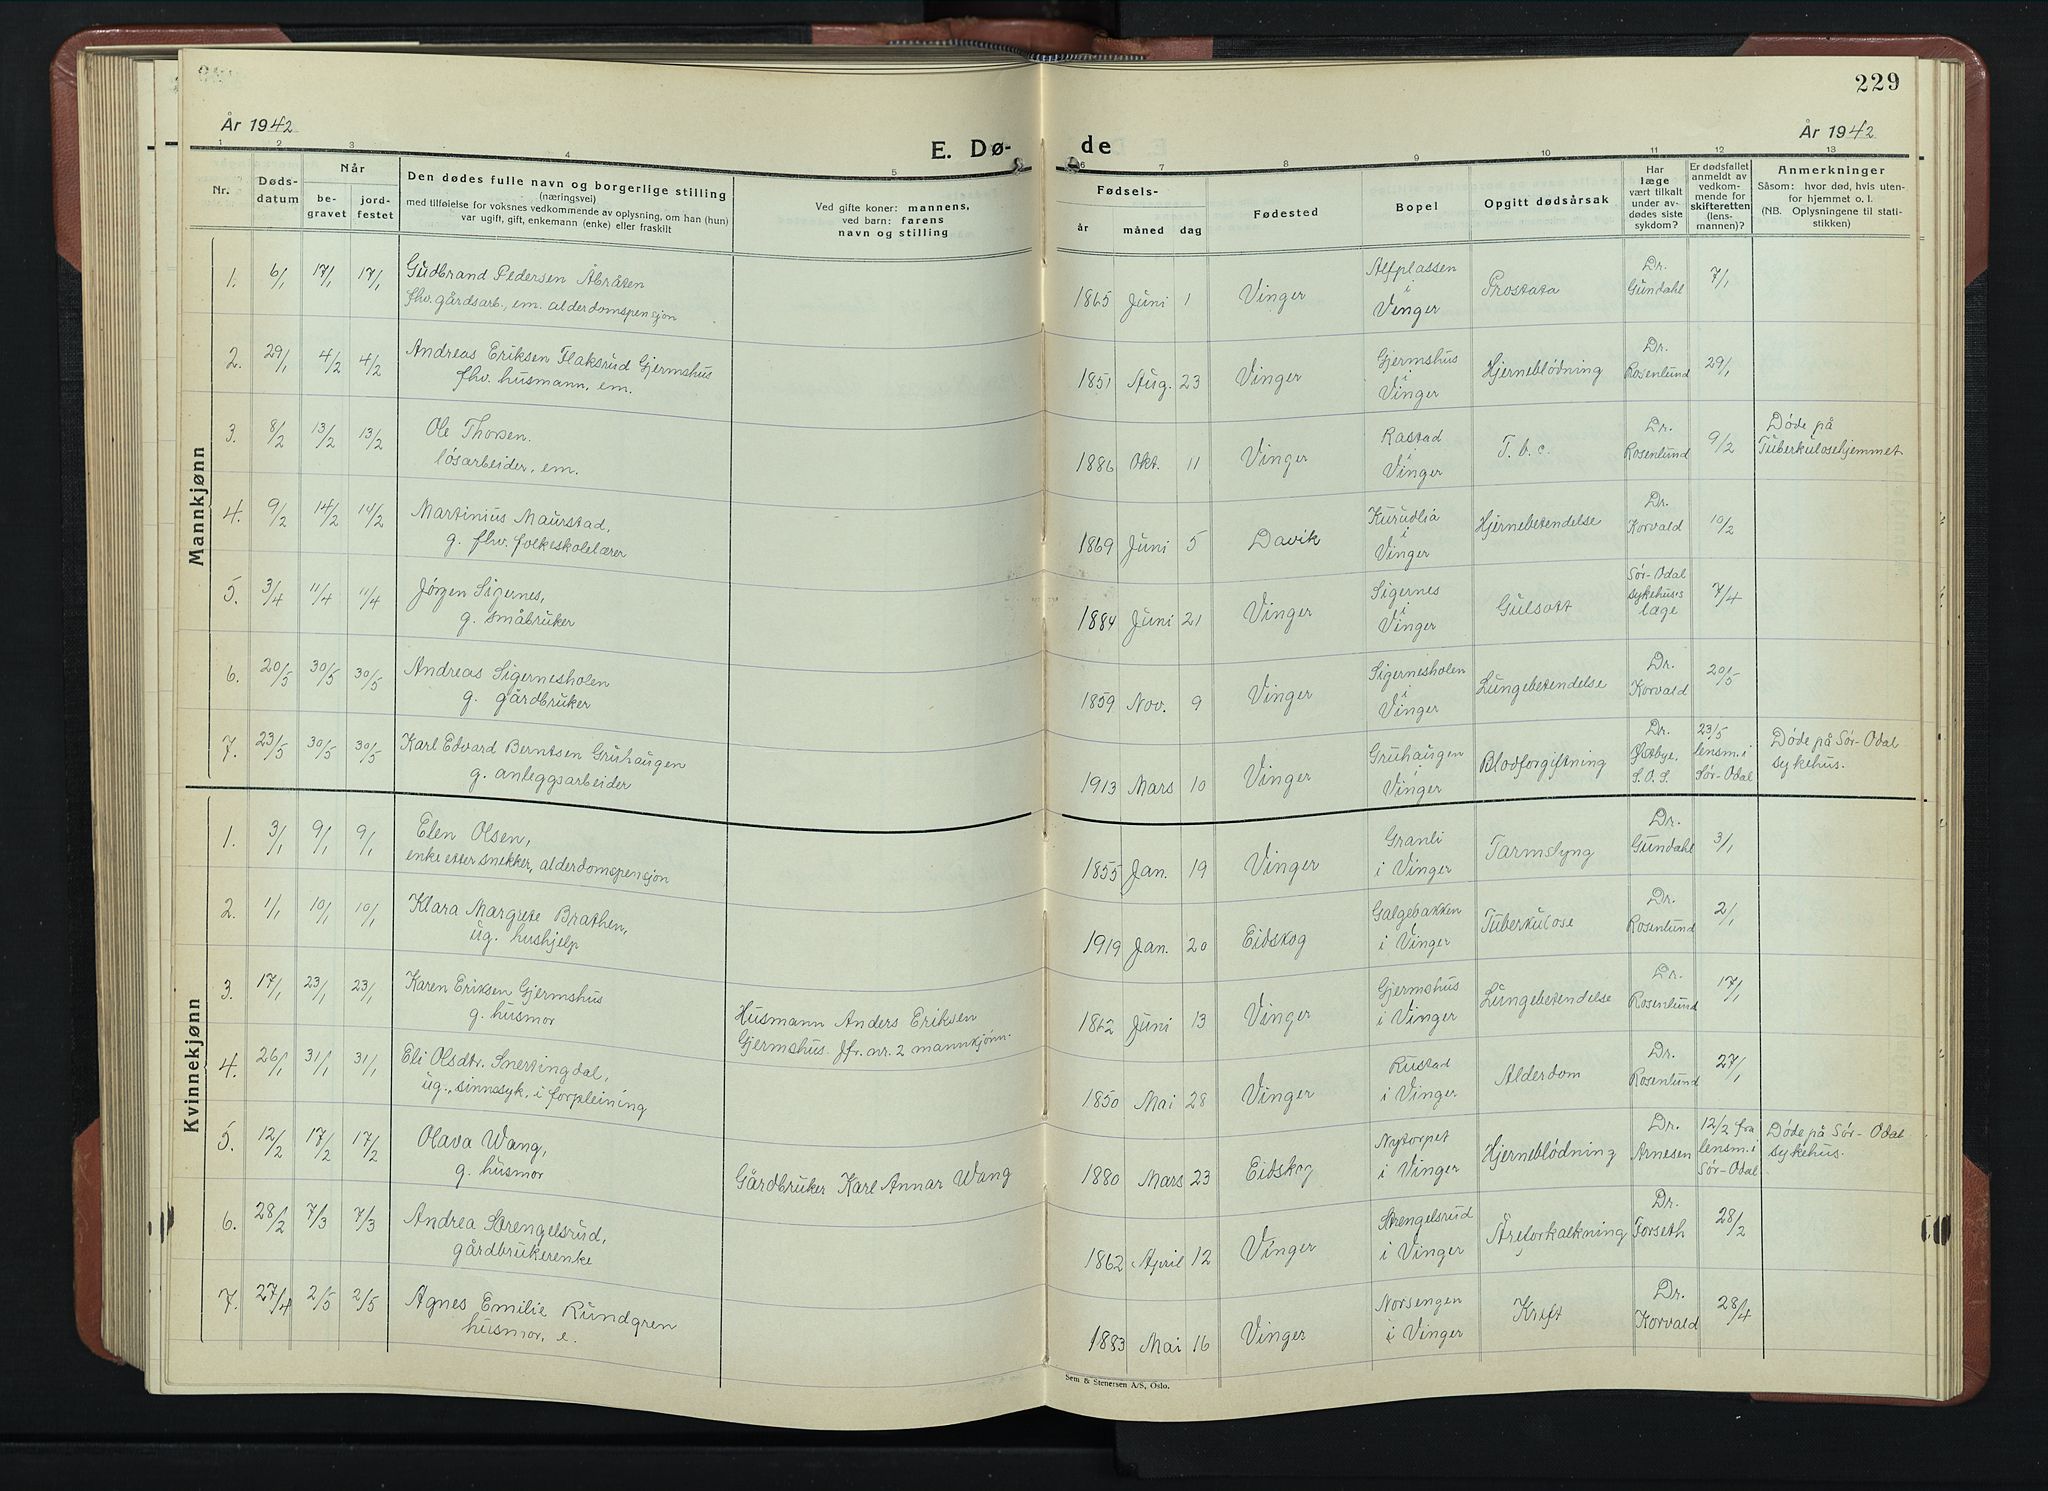 229
År 1942
E. Døde
År 1942
1 2 3 4 5 6 7 8 9 10 11 12 13
Nr.
Dødsdatum
Når
begravet
jordfestet
Den dødes fulle navn og borgerlige stilling
(næringsvei)
med tilføielse for voksnes vedkommende av oplysning, om han (hun)
var ugift, gift, enkemann (enke) eller fraskilt
Ved gifte koner: mannens,
ved barn: farens
navn og stilling
Fødsels-
år måned dag
Fødested
Bopel
Opgitt dødsårsak
Har
læge
vært tilkalt
under av-
dødes siste
sykdom?
Er dødsfallet
anmeldt av
vedkom-
mende for
skifteretten
(lens-
mannen)?
Anmerkninger
Såsom: hvor død, hvis uten-
for hjemmet o. l.
(NB. Oplysningene til stati-
stikken)
Mannkjønn
1. 6/1 17/1 17/1 Gudbrand Pedersen Åbråten 1865 Juni 1 Vinger Alfplassen i Vinger Prostata Dr. Gundahl 7/1
fhv. gårdsarb., em. alderdomspensjon
2. 29/1 4/2 4/2 Andreas Eriksen Flaksrud Gjermshus 1851 Aug. 23 Vinger Gjermshus i Vinger Hjerneblödning Dr. Rosenlund 29/1
fhv. husmann, em.
3. 8/2 13/2 13/2 Ole Thorsen. 1886 Okt. 11 Vinger Rastad i Vinger T.b.c. Dr. Rosenlund 9/2 Døde på Tuberkulosehjemmet
løsarbeider, em.
4. 9/2 14/2 14/2 Martinius Maurstad, 1869 Juni 5 Davik Kurudlia i Vinger Hjernebetendelse Dr. Korvald 10/2
g. fhv. folkeskolelærer
5. 3/4 11/4 11/4 Jørgen Sigernes, 1884 Juni 21 Vinger Sigernes i Vinger Gulsott Sør-Odal sykehus's læge 7/4
g. småbruker
6. 20/5 30/5 30/5 Andreas Sigernesholen 1859 Nov. 9 Vinger Sigernesholen i Vinger Lungebetendelse Dr. Korvald 20/5
g. gårdbruker
7. 23/5 30/5 30/5 Karl Edvard Berntsen Gruhaugen 1913 Mars 10 Vinger Gruhaugen i Vinger Blodforgiftning Dr. S.O.S. 23/5 lensm. i Sør-Odal Døde på Sør-Odal sykehus.
g. anleggsarbeider
Kvinnekjønn
1. 3/1 9/1 9/1 Elen Olsen, 1855 Jan. 19 Vinger Granli i Vinger Tarmslyng Dr. Gundahl 3/1
enke etter snekker, alderdomspensjon
2. 1/1 10/1 10/1 Klara Margrete Bråthen, 1919 Jan. 20 Eidskog Galgebakken i Vinger Tuberkulose Dr. Rosenlund 2/1
ug. hushjelp
3. 17/1 23/1 23/1 Karen Eriksen Gjermshus Husmann Anders Eriksen 1862 Juni 13 Vinger Gjermshus i Vinger Lungebetendelse Dr. Rosenlund 17/1
g. husmor Gjermshus. Jfr. nr. 2 mannkjønn.
4. 26/1 31/1 31/1 Eli Olsdtr. Snertingdal, 1850 Mai 28 Vinger Rustad i Vinger Alderdom Dr. Rosenlund 27/1
ug., sinnssyk, i forpleining
5. 12/2 17/2 17/2 Olava Wang, Gårdbruker Karl Annar Wang 1880 Mars 23 Eidskog Nytorpet i Vinger Hjerneblödning Dr. Arnesen 12/2 fra lensm. i Sør-Odal Døde på Sør-Odal sykehus.
g. husmor
6. 28/2 7/3 7/3 Andrea Strengelsrud, 1862 April 12 Vinger Strengelsrud i Vinger Åreforkalkning Dr. Forseth 28/2
gårdbrukerenke
7. 27/4 2/5 2/5 Agnes Emilie Rundgren 1883 Mai 16 Vinger Norsengen i Vinger Kreft Dr. Korvald 28/4
husmor, e.
Sem & Stenersen A/S, Oslo.